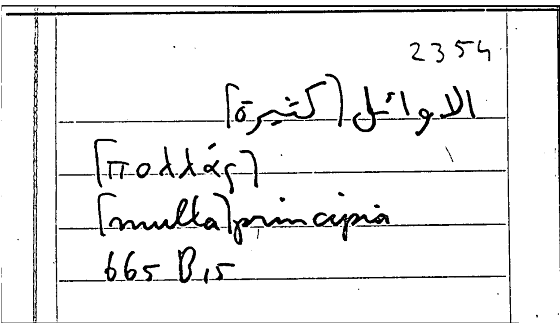 2354
الاوائل [كثيرة]
[πολλάς]
[multa] principia
665 B 15